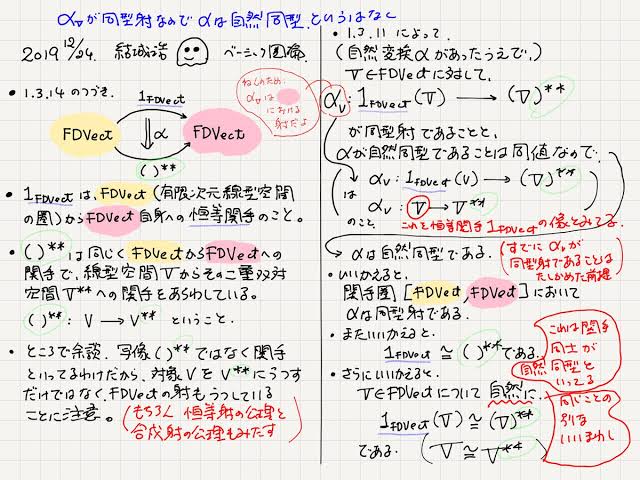 α_Vが同型射なのでαは自然同型 というはなし
2019 12/24. 結城浩 ベーシック圏論.
• 1.3.14 のつづき.
1_FDVect
FDVect
⇓α
FDVect
( )**
ねんのため.
α_Vは
における
射だよ
• 1_FDVect は, FDVect (有限次元線型空間
の圏)から FDVect 自身への恒等関手のこと。
• ( )** は同じく FDVect から FDVect への
関手で, 線型空間 V からその二重双対
空間 V** への関手をあらわしている。
( )** : V → V** ということ.
• ところで余談. 写像 ( )** ではなく関手
といってるわけだから, 対象 V を V** にうつす
だけではなく, FDVect の射もうつしている
ことに注意。
(もちろん 恒等射の公理と
合成射の公理もみたす
• 1.3.11 によって.
(自然変換αがあったうえで,)
V∈FDVect に対して,
α_V : 1_FDVect (V) → (V)**
が同型射であることと,
αが自然同型であることは同値なので,
α_V : 1_FDVect (V) → (V)**
は
α_V : V → V**
のこと.
これを恒等関手 1_FDVect の像とみてる.
→ αは自然同型である.
(すでに α_V が
同型射であることは
たしかめた前提)
• いいかえると,
関手圏 [FDVect, FDVect] において
αは同型射である.
• またいいかえると.
1_FDVect ≅ ( )** である.
これは関手
同士が
自然同型と
いってる
• さらにいいかえると.
V∈FDVect について 自然に,
1_FDVect (V) ≅ (V)**
である. (V ≅ V**)
同じことの
別な
いいまわし